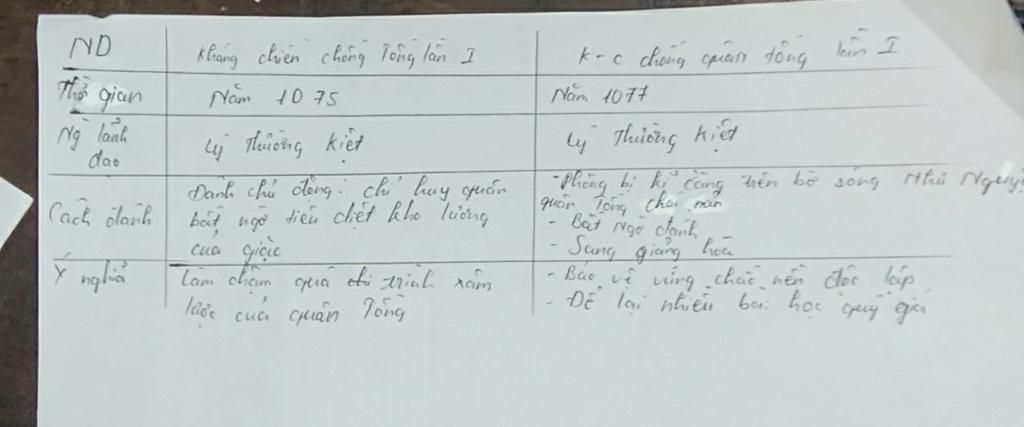 ND
Kháng chiến chống Tống lần I
K-c chống quân tống lần I
Thời gian
Năm 1075
Năm 1077
Ng lãnh
đạo
Lý Thường Kiệt
Lý Thường Kiệt
Cách đánh
Đánh chủ động: chỉ huy quân
bất ngờ tiêu diệt kho lương
của giặc
- Phòng bị kĩ càng trên bờ sông Như Nguyệt
quân Tống chán nản
- Bất Ngờ đánh
- Sang giảng hoà
Ý nghĩa
Làm chậm quá trình xâm
lược của quân Tống
- Bảo vệ vững chắc nền độc lập
- Để lại nhiều bài học quý giá